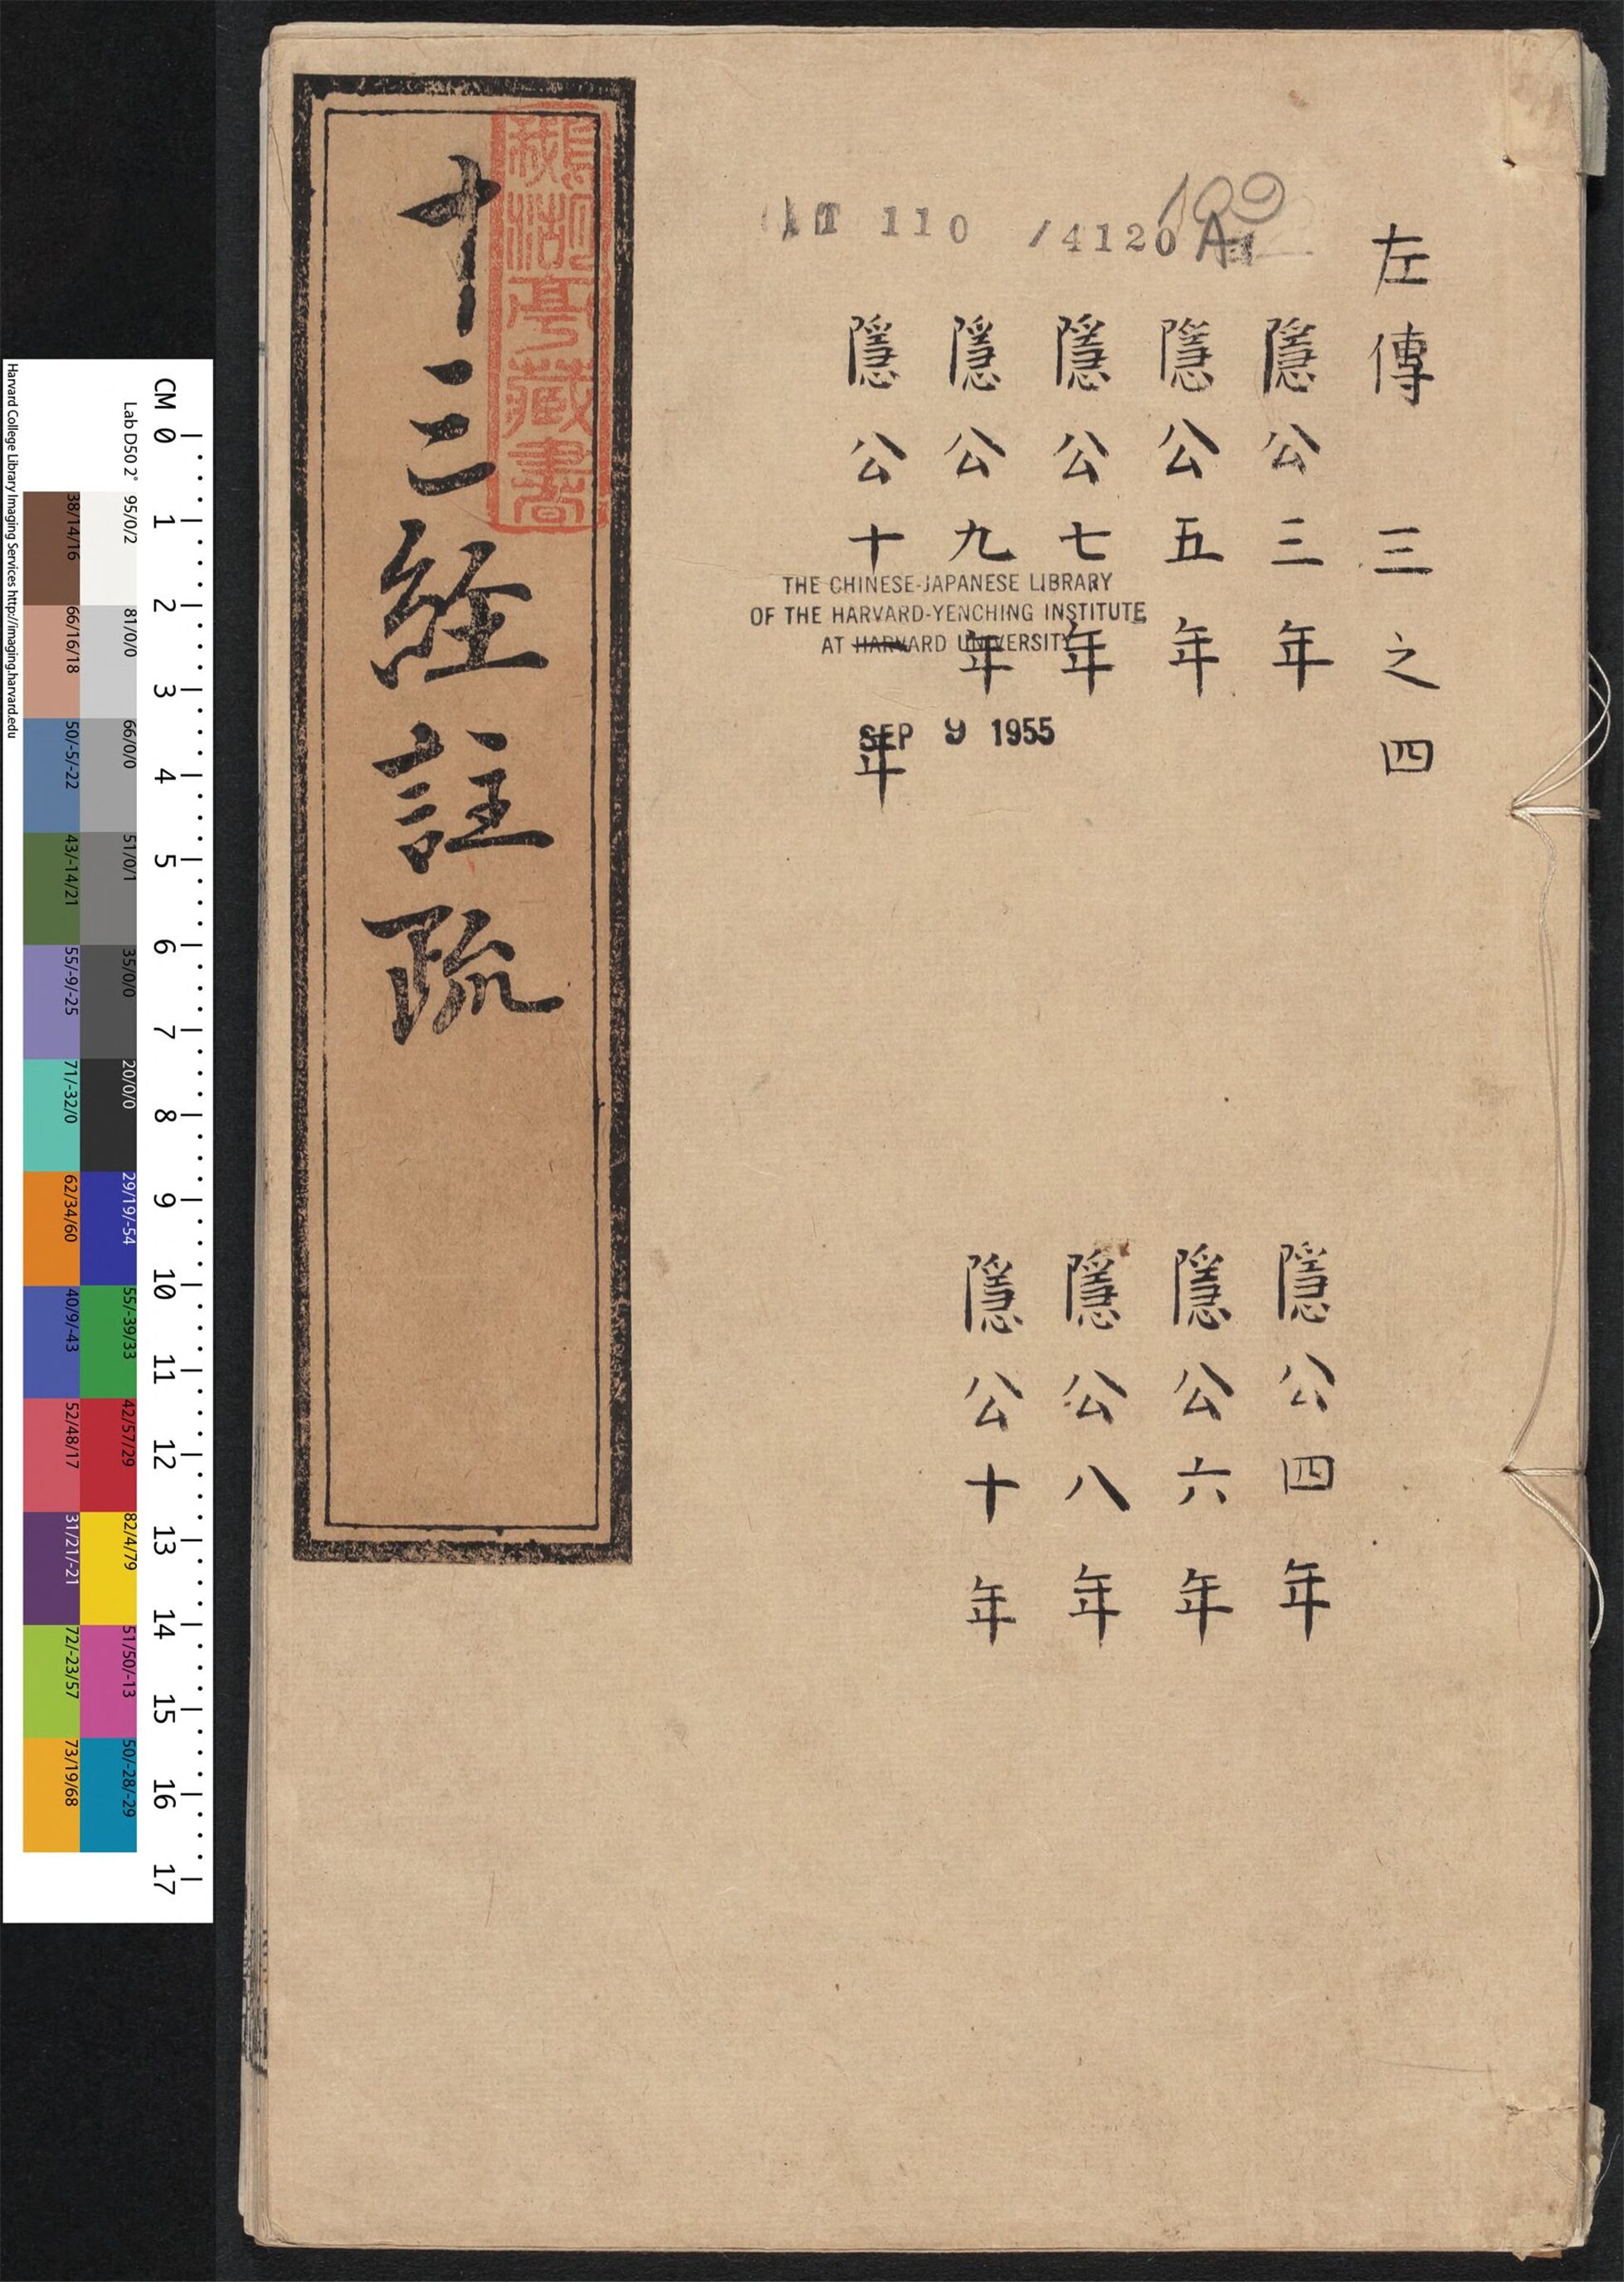 左傳 三之四
隱公三年
隱公四年
隱公五年
隱公六年
隱公七年
隱公八年
隱公九年
隱公十年
隱公十一年
110 /4120
109
THE CHINESE-JAPANESE LIBRARY
OF THE HARVARD-YENCHING INSTITUTE
AT HARVARD UNIVERSITY
SEP 9 1955
十三経註疏
湖亭藏書
Harvard College Library Imaging Services http://imaging.harvard.edu
Lab D50 2°
CM 0 1 2 3 4 5 6 7 8 9 10 11 12 13 14 15 16 17
95/0/2 81/0/0 66/0/0 51/0/1 35/0/0 20/0/0 29/19/-54 55/-39/33 42/57/29 82/4/79 51/50/-13 50/-28/-29
38/14/16 66/16/18 50/-5/-22 43/-14/21 55/-9/-25 71/-32/0 62/34/60 40/9/-43 52/48/17 31/21/-21 72/-23/57 73/19/68